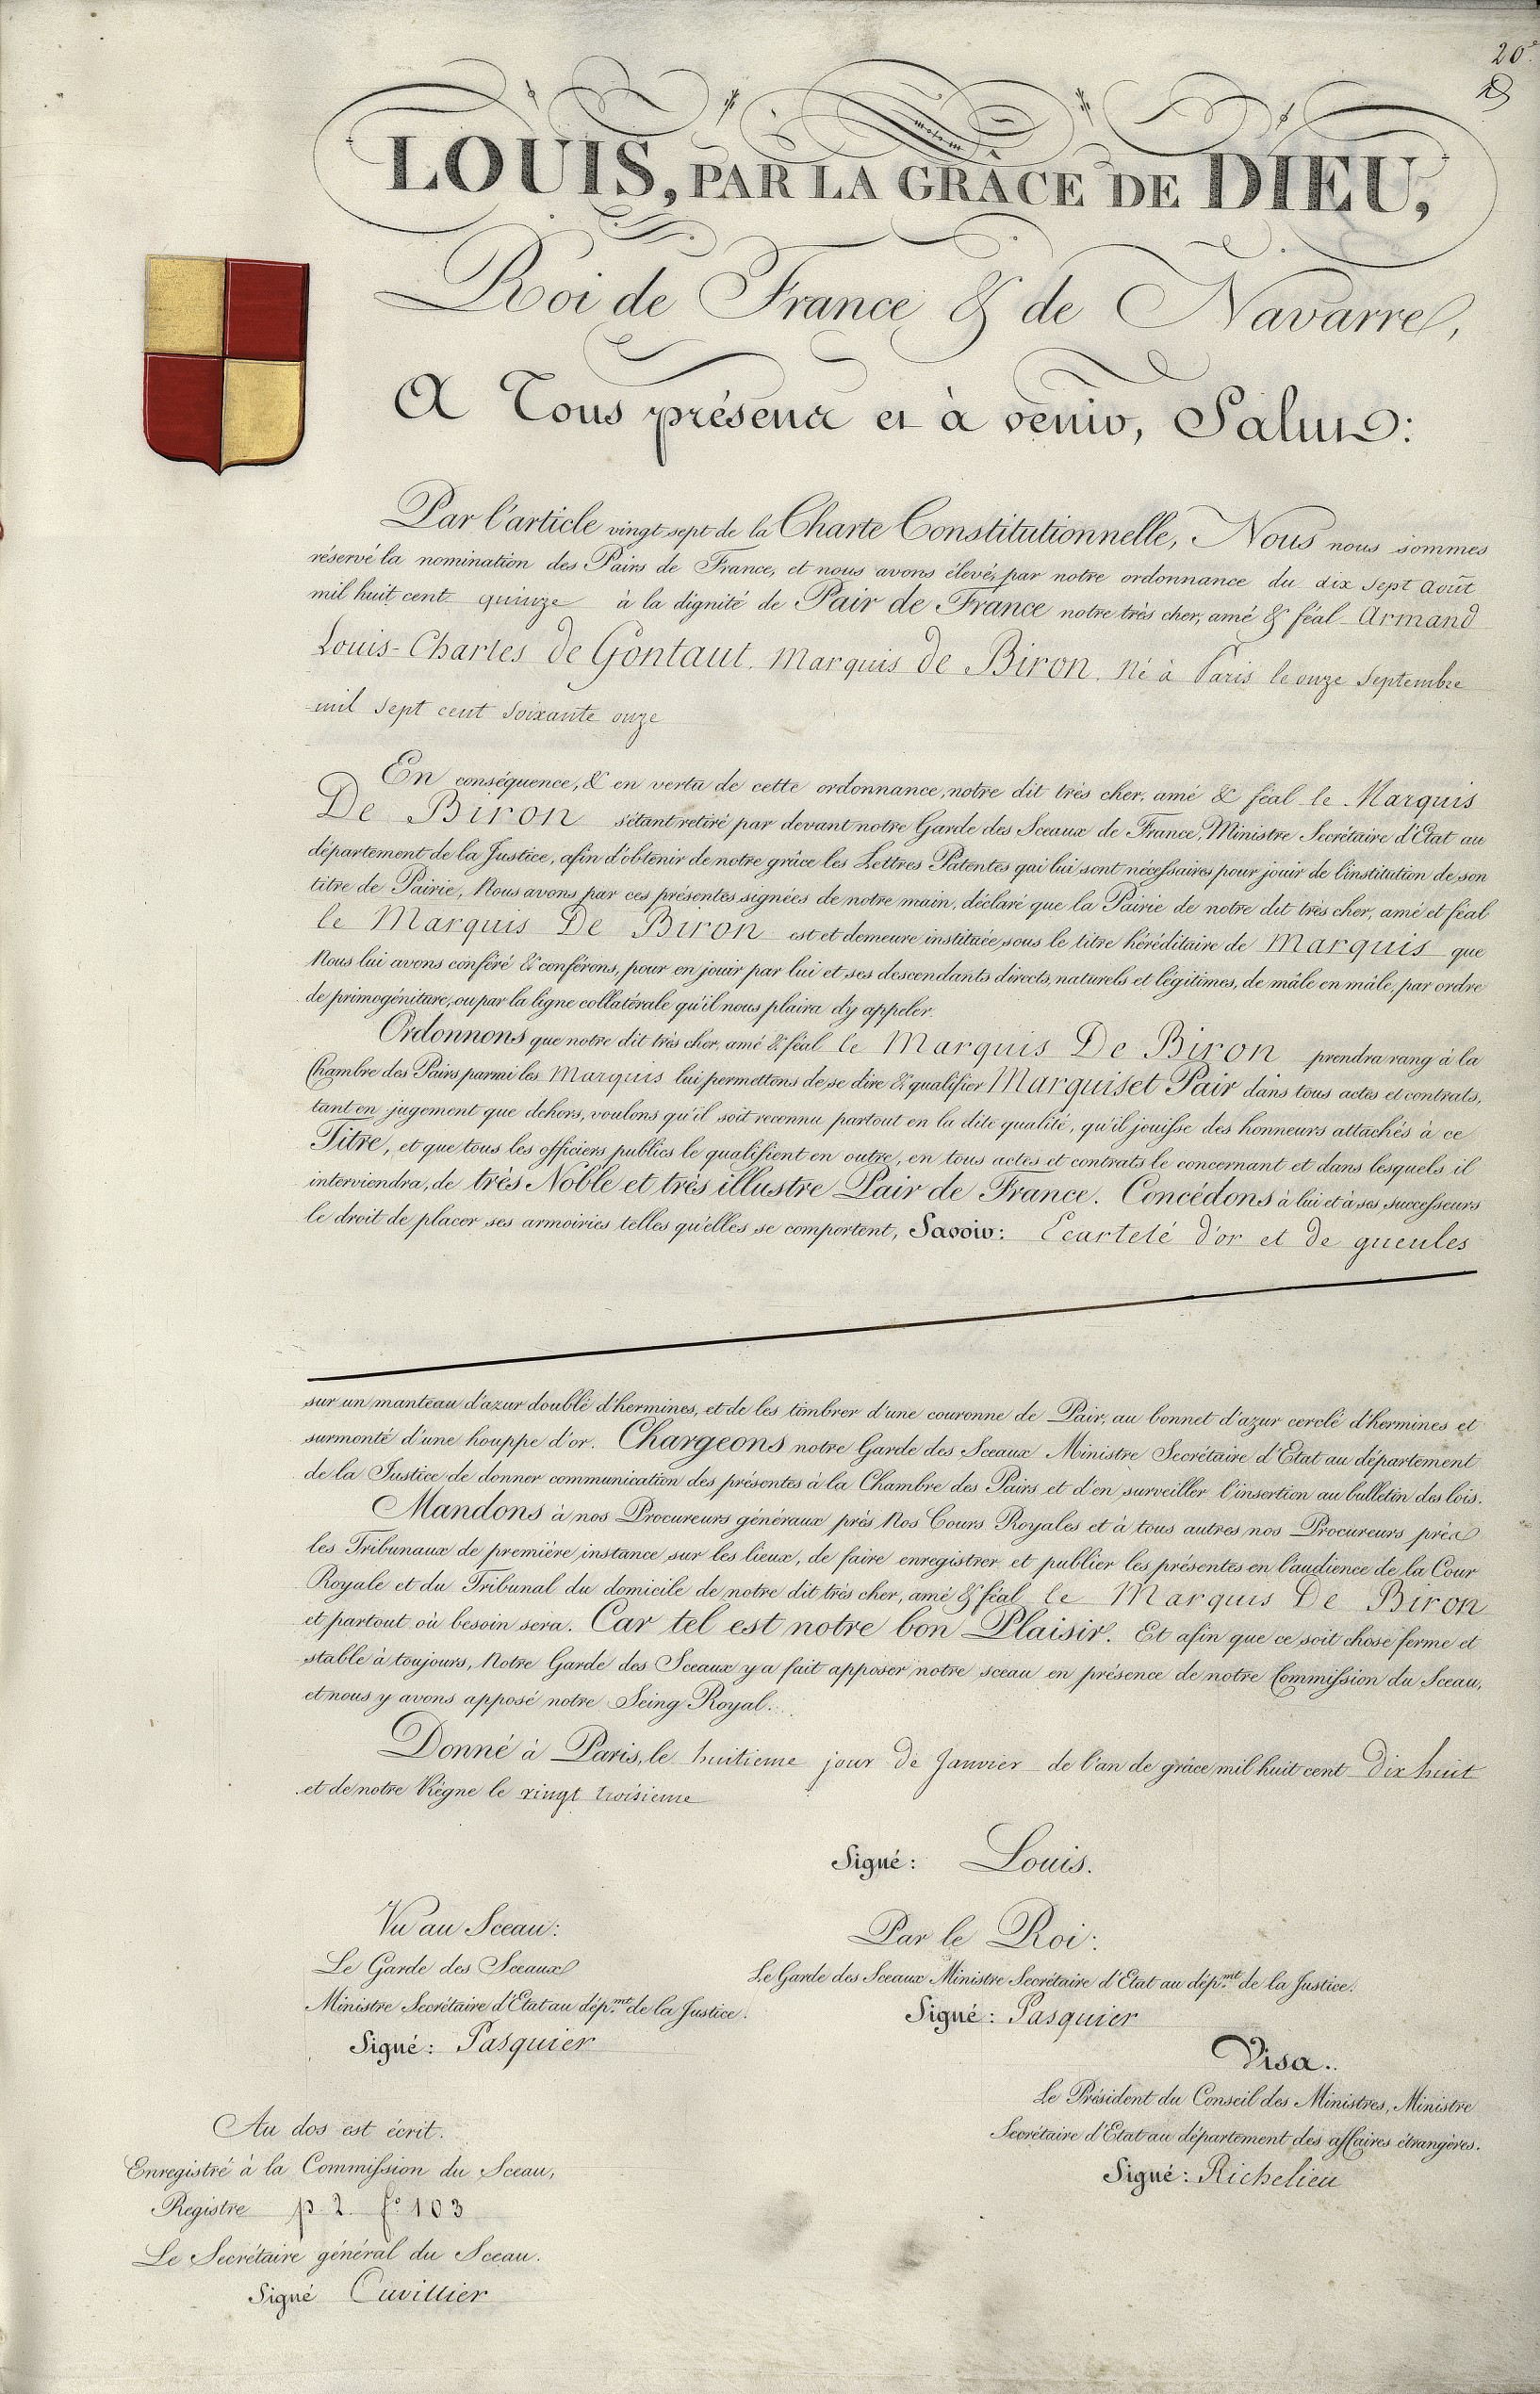 20e
LOUIS, PAR LA GRÂCE DE DIEU,
Roi de France & de Navarre,
A Tous présens et à venir, Salut:
Par l'article vingt sept de la Charte Constitutionnelle, Nous nous sommes
réservé la nomination des Pairs de France, et nous avons élevé, par notre ordonnance du dix sept août
mil huit cent quinze à la dignité de Pair de France notre très cher, amé & féal Armand
Louis-Charles de Gontaut, Marquis de Biron, né à Paris le onze Septembre
mil sept cent soixante onze
En conséquence, & en vertu de cette ordonnance, notre dit très cher, amé & féal le Marquis
De Biron s'étant retiré par devant notre Garde des Sceaux de France, Ministre Secrétaire d'Etat au
département de la Justice, afin d'obtenir de notre grâce les Lettres Patentes qui lui sont nécessaires pour jouir de l'institution de son
titre de Pairie, Nous avons par ces présentes signées de notre main, déclaré que la Pairie de notre dit très cher, amé et féal
le Marquis De Biron est et demeure instituée sous le titre héréditaire de Marquis que
Nous lui avons conféré & conférons, pour en jouir par lui et ses descendants directs, naturels et légitimes, de mâle en mâle, par ordre
de primogéniture, ou par la ligne collatérale qu'il nous plaira d'y appeler.
Ordonnons que notre dit très cher, amé & féal le Marquis De Biron prendra rang à la
Chambre des Pairs parmi les Marquis lui permettons de se dire & qualifier Marquis et Pair dans tous actes et contrats,
tant en jugement que dehors, voulons qu'il soit reconnu partout en la dite qualité, qu'il jouisse des honneurs attachés à ce
Titre, et que tous les officiers publics le qualifient en outre, en tous actes et contrats le concernant et dans lesquels il
interviendra, de très Noble et très illustre Pair de France. Concédons à lui et à ses successeurs
le droit de placer ses armoiries telles qu'elles se comportent, Savoir: Ecartelé d'or et de gueules
sur un manteau d'azur doublé d'hermines, et de les timbrer d'une couronne de Pair, au bonnet d'azur cerclé d'hermines et
surmonté d'une houppe d'or. Chargeons notre Garde des Sceaux Ministre Secrétaire d'Etat au département
de la Justice de donner communication des présentes à la Chambre des Pairs et d'en surveiller l'insertion au bulletin des lois.
Mandons à nos Procureurs généraux près Nos Cours Royales et à tous autres nos Procureurs près
les Tribunaux de première instance sur les lieux, de faire enregistrer et publier les présentes en l'audience de la Cour
Royale et du Tribunal du domicile de notre dit très cher, amé & féal le Marquis De Biron
et partout où besoin sera. Car tel est notre bon Plaisir. Et afin que ce soit chose ferme et
stable à toujours, Notre Garde des Sceaux y a fait apposer notre sceau en présence de notre Commission du Sceau,
et nous y avons apposé notre Seing Royal.
Donné à Paris, le huitieme jour de Janvier de l'an de grâce mil huit cent Dix huit
et de notre Règne le vingt troisieme
Signé: Louis.
Vu au Sceau:
Le Garde des Sceaux
Ministre Secrétaire d'Etat au dép.mt de la Justice.
Signé: Pasquier
Par le Roi:
Le Garde des Sceaux Ministre Secrétaire d'Etat au dép.mt de la Justice.
Signé: Pasquier
Visa.
Le Président du Conseil des Ministres, Ministre
Secrétaire d'Etat au département des affaires étrangères.
Signé: Richelieu
Au dos est écrit.
Enregistré à la Commission du Sceau,
Registre p 2 f° 103
Le Secrétaire général du Sceau.
Signé Cuvillier